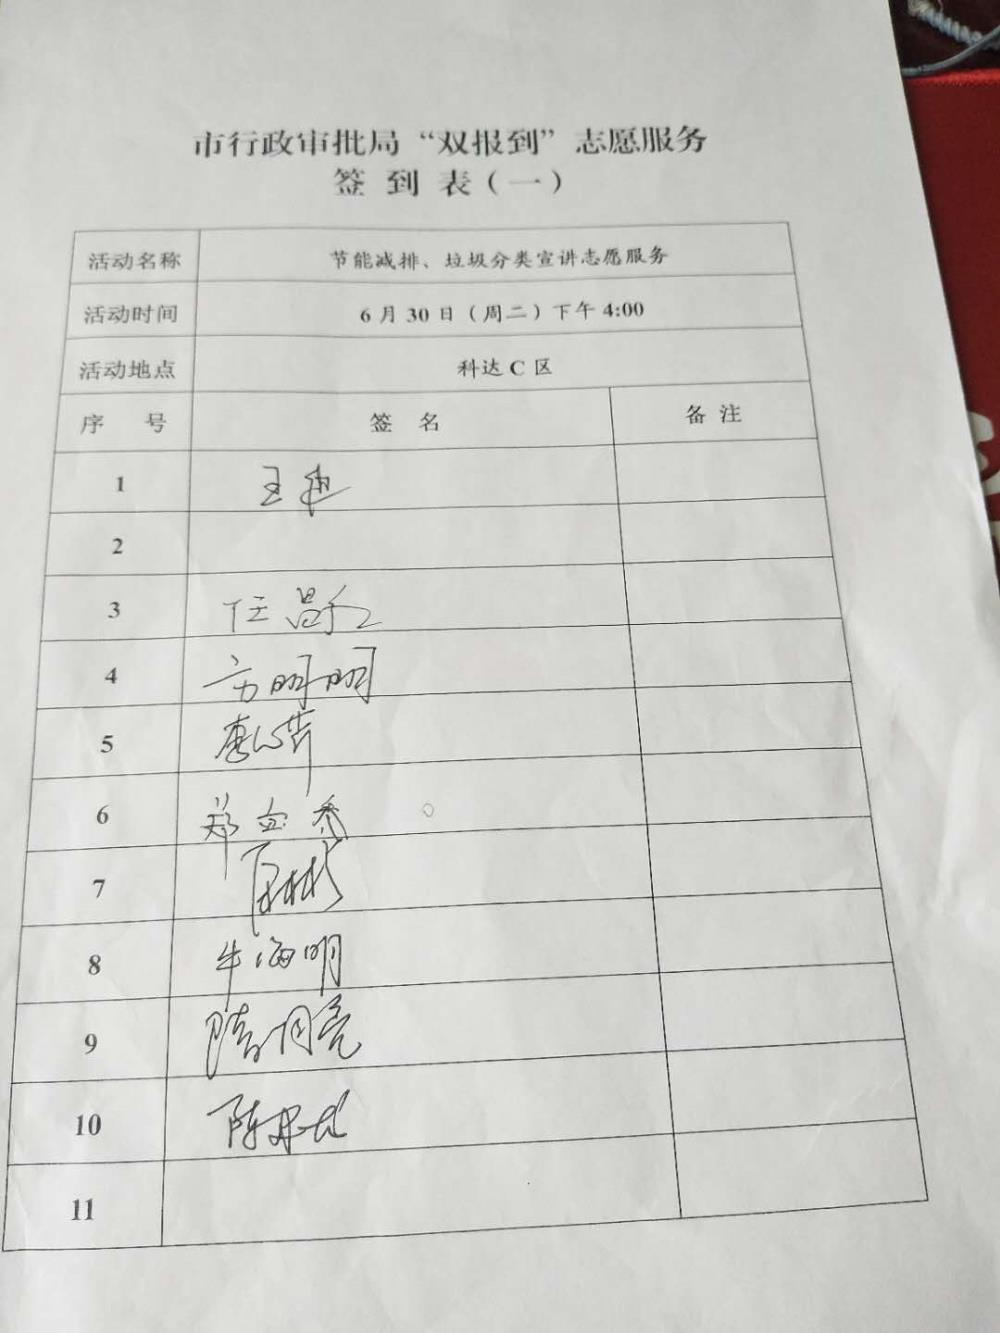 市行政审批局“双报到”志愿服务
签 到 表（一）
活动名称 节能减排、垃圾分类宣讲志愿服务
活动时间 6月30日（周二）下午4:00
活动地点 科达C区
序 号 签 名 备 注
1 王
2
3 任
4 方明明
5 唐
6 郑
7
8 牛海明
9 隋月亮
10 陈
11